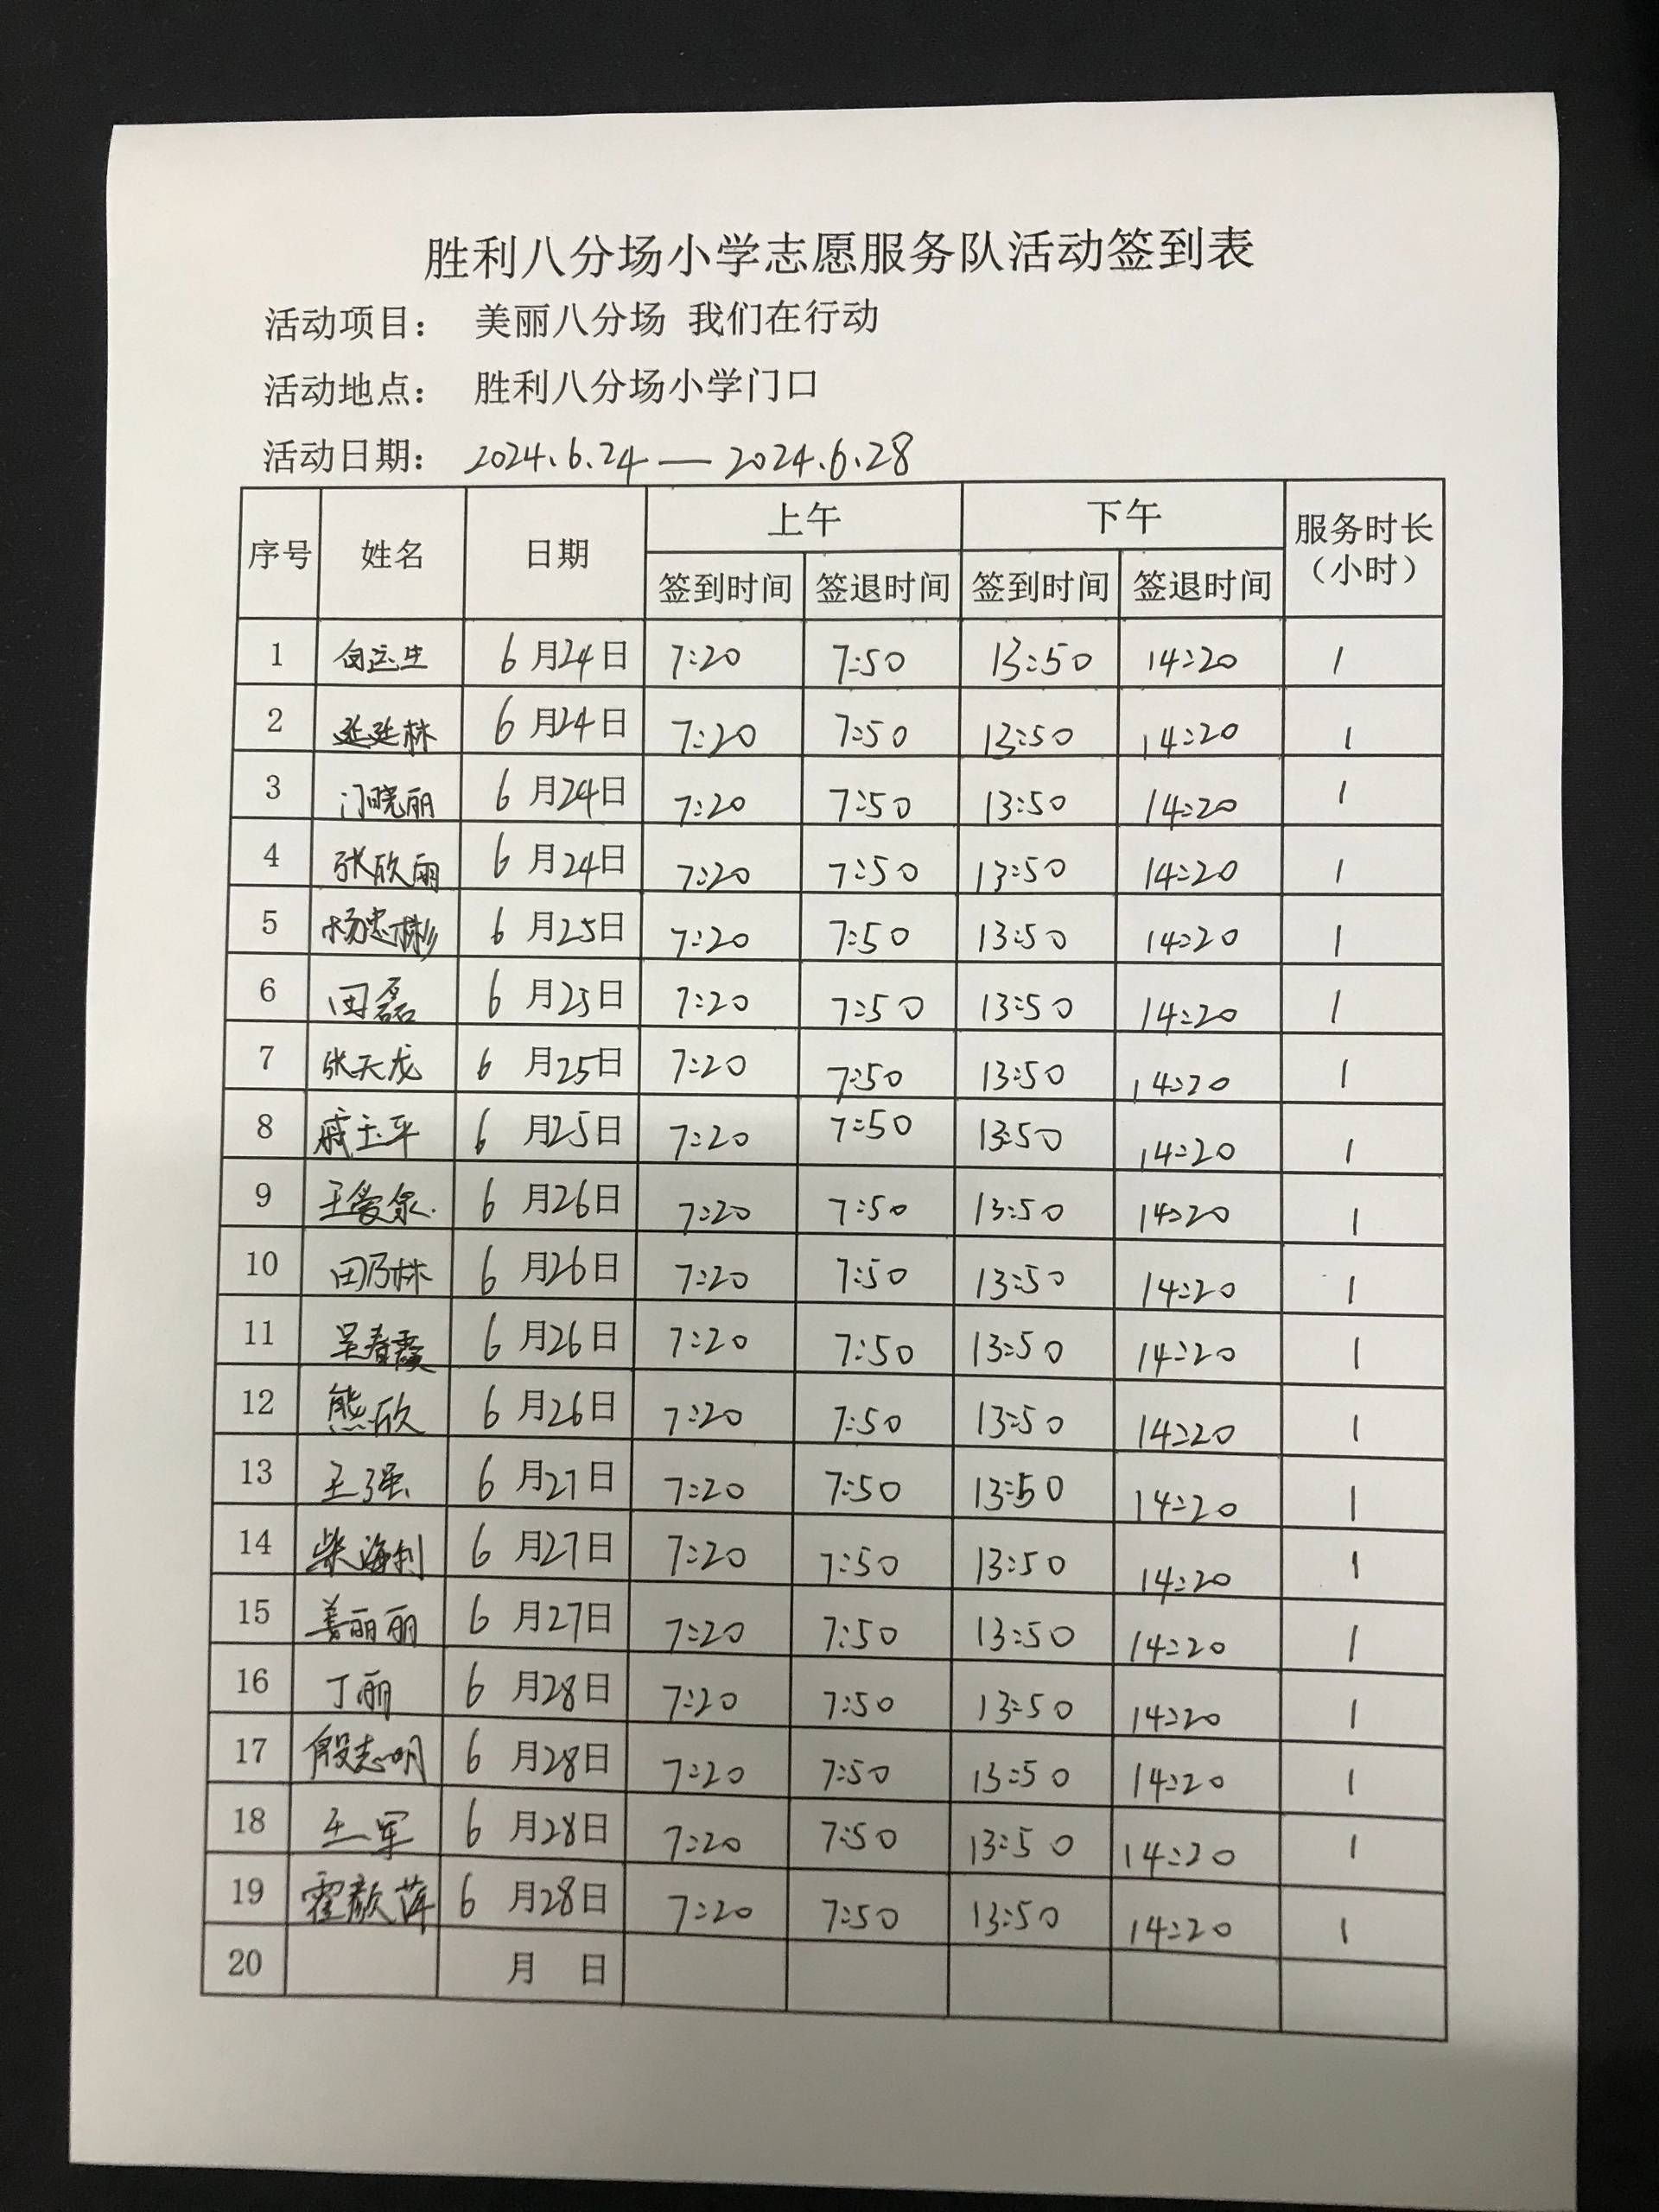 胜利八分场小学志愿服务队活动签到表
活动项目： 美丽八分场 我们在行动
活动地点： 胜利八分场小学门口
活动日期： 2024.6.24 — 2024.6.28
序号 姓名 日期 上午 下午 服务时长（小时）
签到时间 签退时间 签到时间 签退时间
1 6月24日 7:20 7:50 13:50 14:20 1
2 6月24日 7:20 7:50 13:50 14:20 1
3 门晓丽 6月24日 7:20 7:50 13:50 14:20 1
4 张欣丽 6月24日 7:20 7:50 13:50 14:20 1
5 杨忠彬 6月25日 7:20 7:50 13:50 14:20 1
6 田磊 6月25日 7:20 7:50 13:50 14:20 1
7 张天龙 6月25日 7:20 7:50 13:50 14:20 1
8 戚玉平 6月25日 7:20 7:50 13:50 14:20 1
9 王爱泉 6月26日 7:20 7:50 13:50 14:20 1
10 田乃林 6月26日 7:20 7:50 13:50 14:20 1
11 吴春霞 6月26日 7:20 7:50 13:50 14:20 1
12 熊欣 6月26日 7:20 7:50 13:50 14:20 1
13 王强 6月27日 7:20 7:50 13:50 14:20 1
14 柴海利 6月27日 7:20 7:50 13:50 14:20 1
15 姜丽丽 6月27日 7:20 7:50 13:50 14:20 1
16 丁丽 6月28日 7:20 7:50 13:50 14:20 1
17 殷志明 6月28日 7:20 7:50 13:50 14:20 1
18 王军 6月28日 7:20 7:50 13:50 14:20 1
19 霍颜萍 6月28日 7:20 7:50 13:50 14:20 1
20 月 日